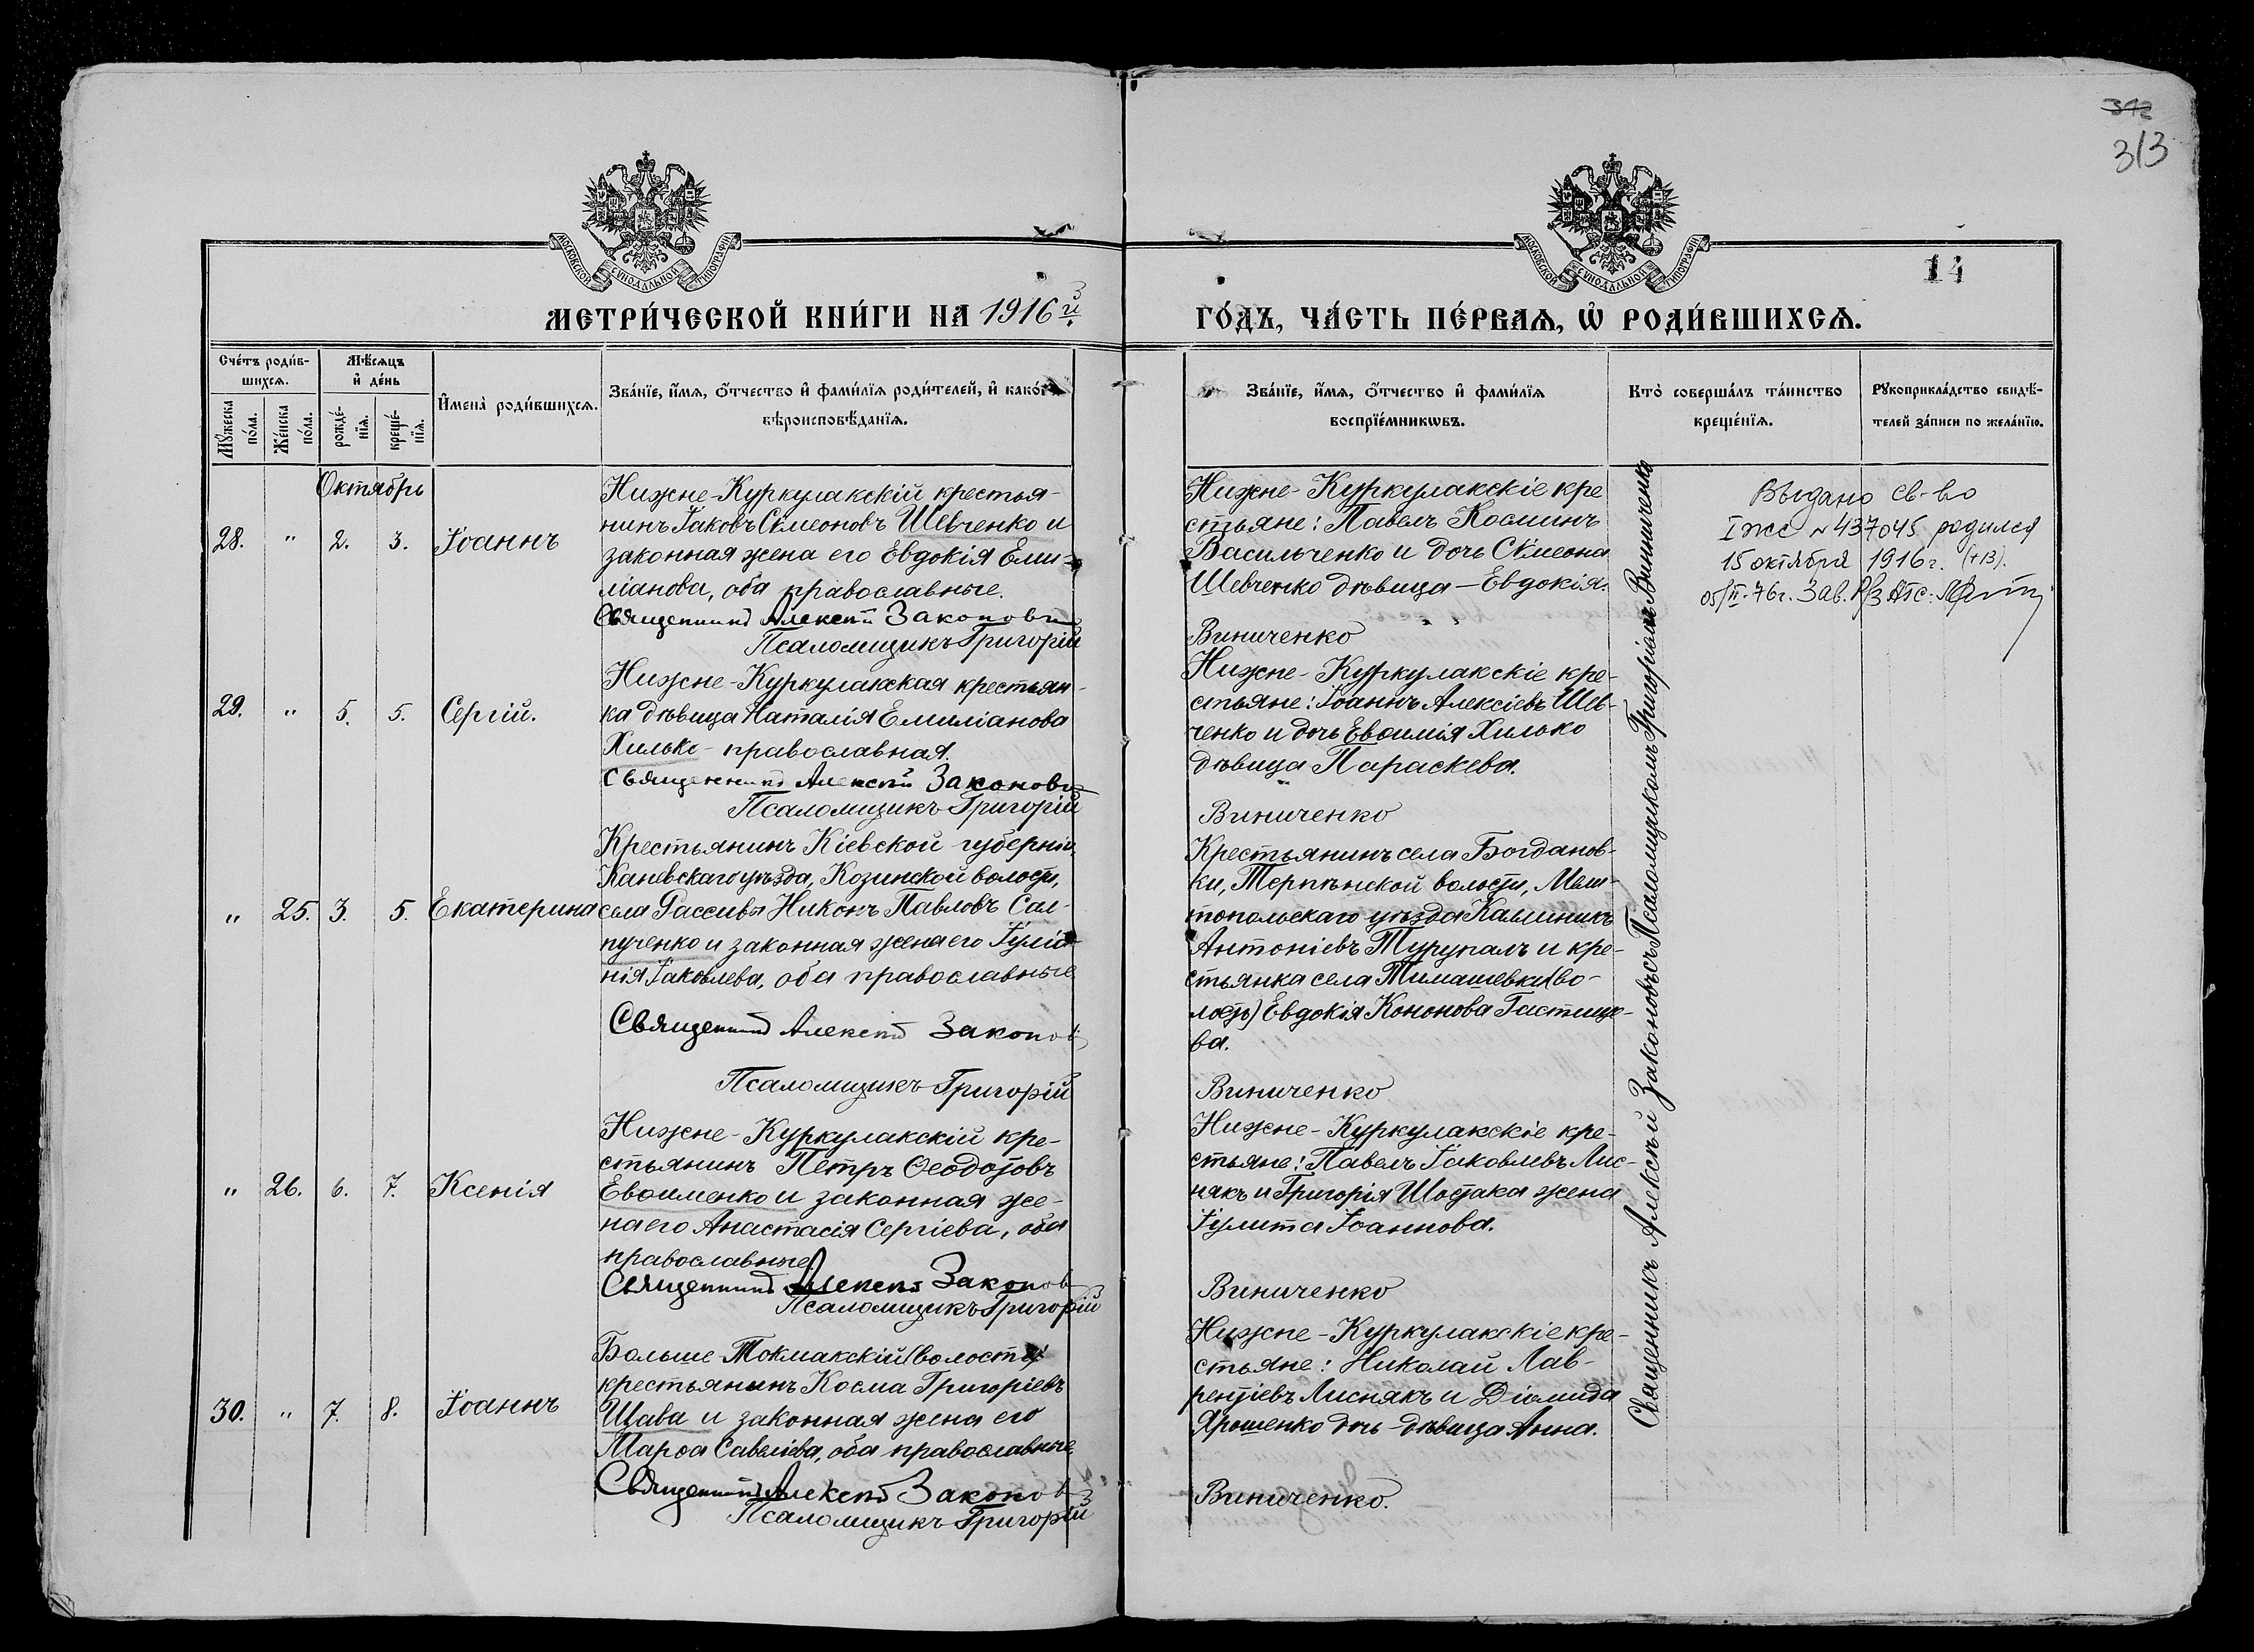 312
313
МОСКОВСКОЙ СѴНОДАЛЬНОЙ ТИПОГРАФІИ
МОСКОВСКОЙ СѴНОДАЛЬНОЙ ТИПОГРАФІИ
14
МЕТРИ́ЧЕСКОЙ КНИ́ГИ НА 1916й
ГО́ДЪ, ЧА́СТЬ ПЕ́РВАѦ, Ѡ҆ РОДИ́ВШИХСѦ.
Сче́тъ роди́в-
шихсѧ.
Мꙋ́жеска по́ла.
Же́нска по́ла.
Мѣ́сѧцъ
и҆ де́нь
рожде́-
нїѧ.
креще́-
нїѧ.
И҆мена̀ роди́вшихсѧ.
Зва́нїе, и҆́мѧ, ѻ҆́тчество и҆ фами́лїѧ роди́телей, и҆ како́гѡ
вѣроисповѣ́данїѧ.
Зва́нїе, и҆́мѧ, ѻ҆́тчество и҆ фами́лїѧ
воспрїе́мникѡвъ.
Кто̀ соверша́лъ та́инство
креще́нїѧ.
Рꙋкоприкла́дство свидѣ́-
телей за́писи по жела́нїю.
Октябрь
28. " 2. 3. Іоаннъ
Нижне-Куркулакскій крестья-
нинъ Іаковъ Сѵмеоновъ Шевченко и
законная жена его Евдокія Еми-
ліанова, оба православные.
Священникъ Алексѣй Законовъ
Псаломщикъ Григорій
Нижне-Куркулакскіе кре
стьяне: Павелъ Косминъ
Васильченко и дочь Сѵмеона
Шевченко дѣвица - Евдокія.
Виниченко
Выдано св-во
I жс № 437045 родился
15 октября 1916 г. (+13).
05/II-76г. Зав.
29. " 5. 5. Сергій.
Нижне-Куркулакская крестьян-
ка дѣвица Наталія Емиліанова
Хилько - православная.
Священникъ Алексѣй Законовъ
Псаломщикъ Григорій
Нижне-Куркулакскіе кре-
стьяне: Іоаннъ Алексіевъ Шев-
ченко и дочь Евѳимія Хилько
дѣвица Параскева.
Виниченко
" 25. 3. 5. Екатерина
Крестьянинъ Кіевской губерніи,
Каневскаго уѣзда, Козинской волости,
села Рассавы Никонъ Павловъ Сал-
пученко и законная жена его Іуліа-
нія Іаковлева, оба православные
Священникъ Алексѣй Законовъ
Псаломщикъ Григорій
Крестьянинъ села Богданов-
ки, Терпѣнской волости, Мели-
топольскаго уѣзда Каллиникъ
Антоніевъ Турупалъ и кре-
стьянка села Тимашевки (во-
лость) Евдокія Кононова Гастище-
ва.
Виниченко
" 26. 6. 7. Ксенія
Нижне-Куркулакскій кре-
стьянинъ Петръ Ѳеодотовъ
Евѳименко и законная же-
на его Анастасія Сергіева, оба
православные
Священникъ Алексѣй Законовъ
Псаломщикъ Григорій
Нижне-Куркулакскіе кре-
стьяне: Павелъ Іаковлевъ Лис-
някъ и Григорія Шостака жена
Іулитта Іоаннова.
Виниченко
30. " 7. 8. Іоаннъ
Больше Токмакскій (волость)
крестьянинъ Косма Григоріевъ
Щава и законная жена его
Марѳа Савеліева, оба православные.
Священникъ Алексѣй Законовъ
Псаломщикъ Григорій
Нижне-Куркулакскіе кре-
стьяне: Николай Лав-
рентіевъ Лиснякъ и Діомида
Ярошенко дочь - дѣвица Анна.
Виниченко.
Священникъ Алексѣй Законовъ съ Псаломщикомъ Григоріемъ Виниченко